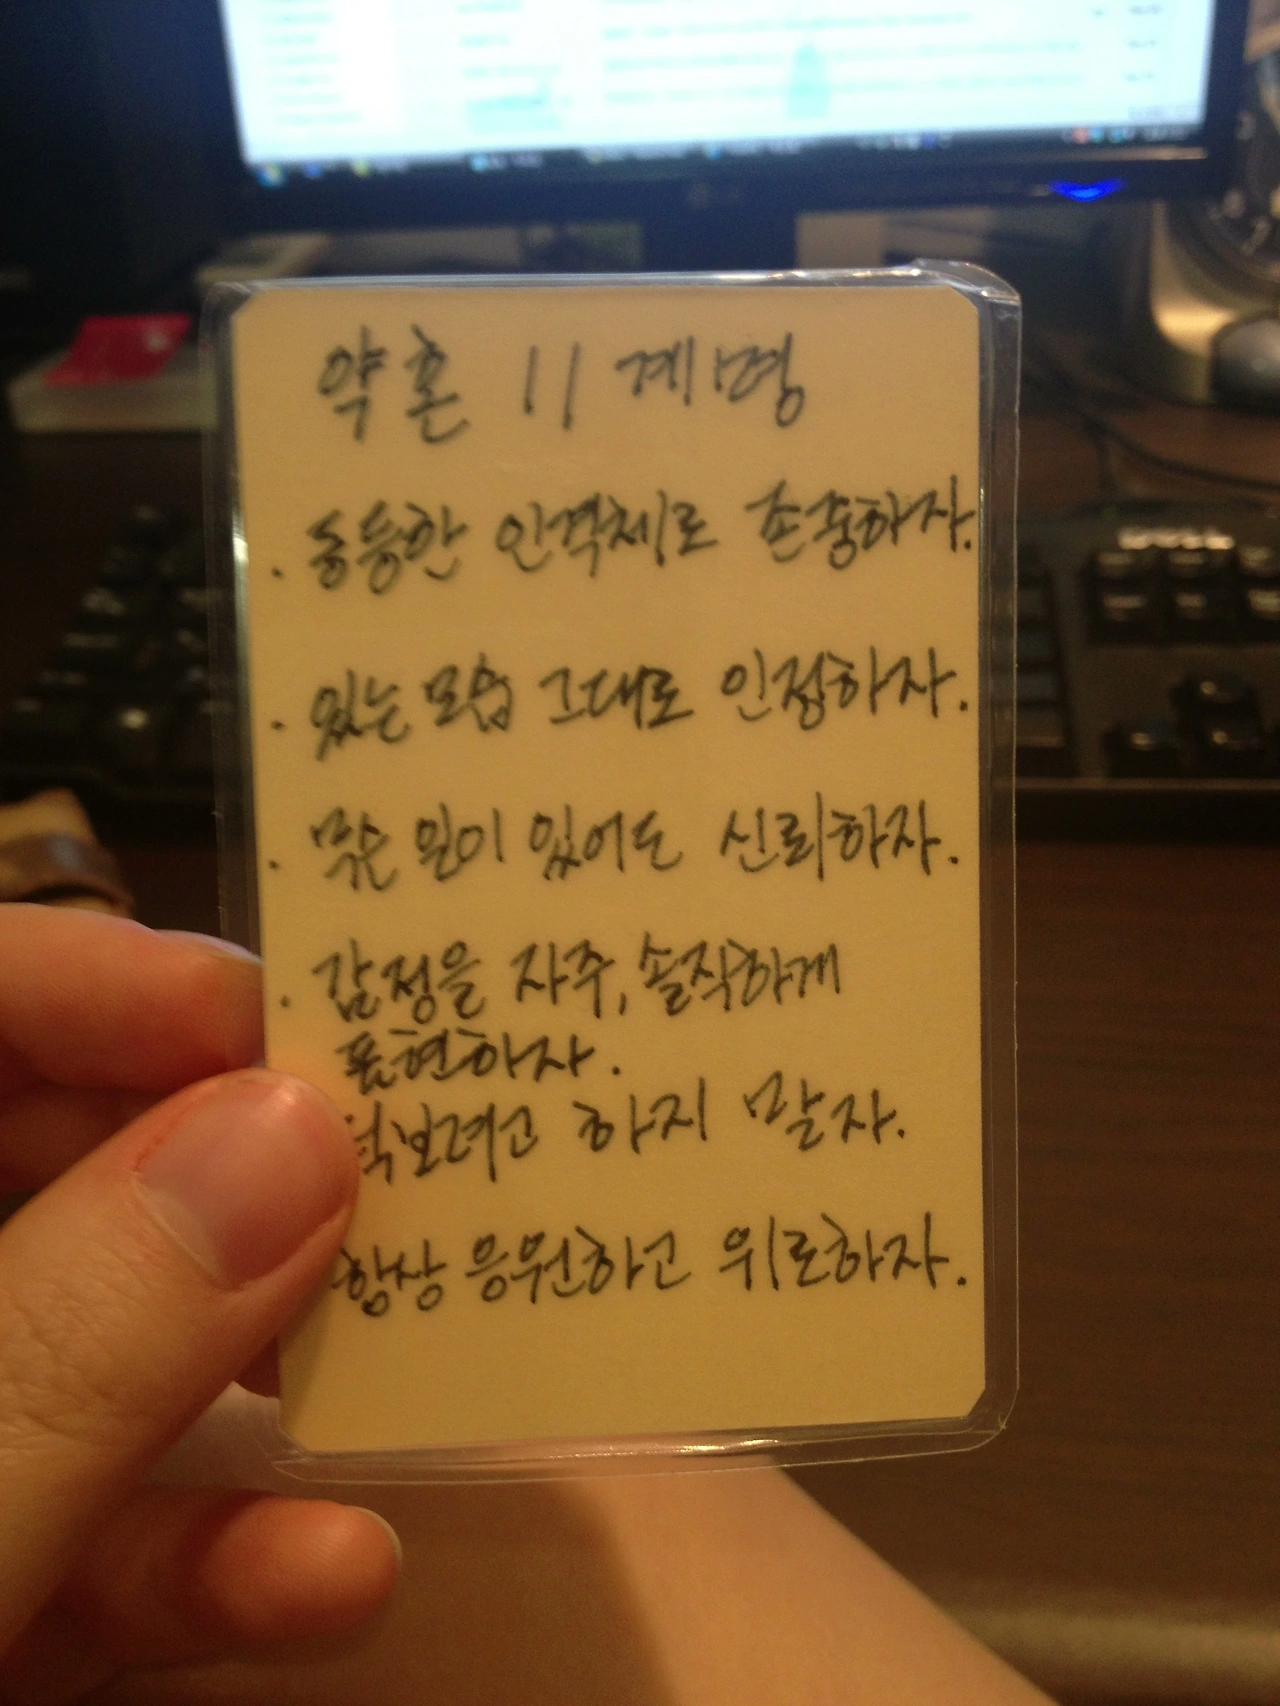 약혼 11 계명
· 동등한 인격체로 존중하자.
· 있는 모습 그대로 인정하자.
· 무슨 일이 있어도 신뢰하자.
· 감정을 자주, 솔직하게
표현하자.
하지 말자.
항상 응원하고 위로하자.
DELL